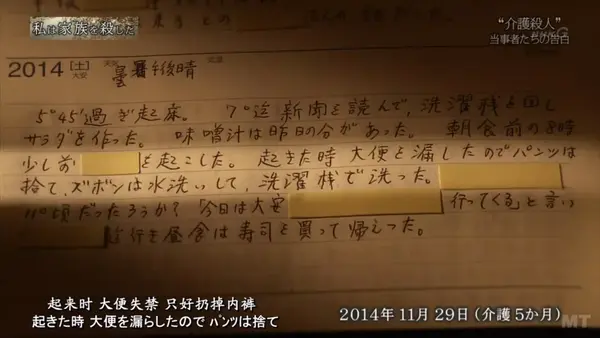 私は家族を殺した
“介護殺人”
当事者たちの告白
2014 [土] 大安 曇 午後晴
5°45'過ぎ起床。 7°迄新聞を読んで、洗濯機を回し
サラダを作った。 味噌汁は昨日の分があった。 朝食前の8時
少し前 を起こした。 起きた時大便を漏したのでパンツは
捨て、ズボンは水洗いして、洗濯機で洗った。
11°頃だったろうか?「今日は大安 行ってくる」と言い
昼食は寿司を買って帰えった。
起来时 大便失禁 只好扔掉内裤
起きた時 大便を漏らしたので ﾊﾟﾝﾂは捨て
2014年11月29日(介護5か月)
MT